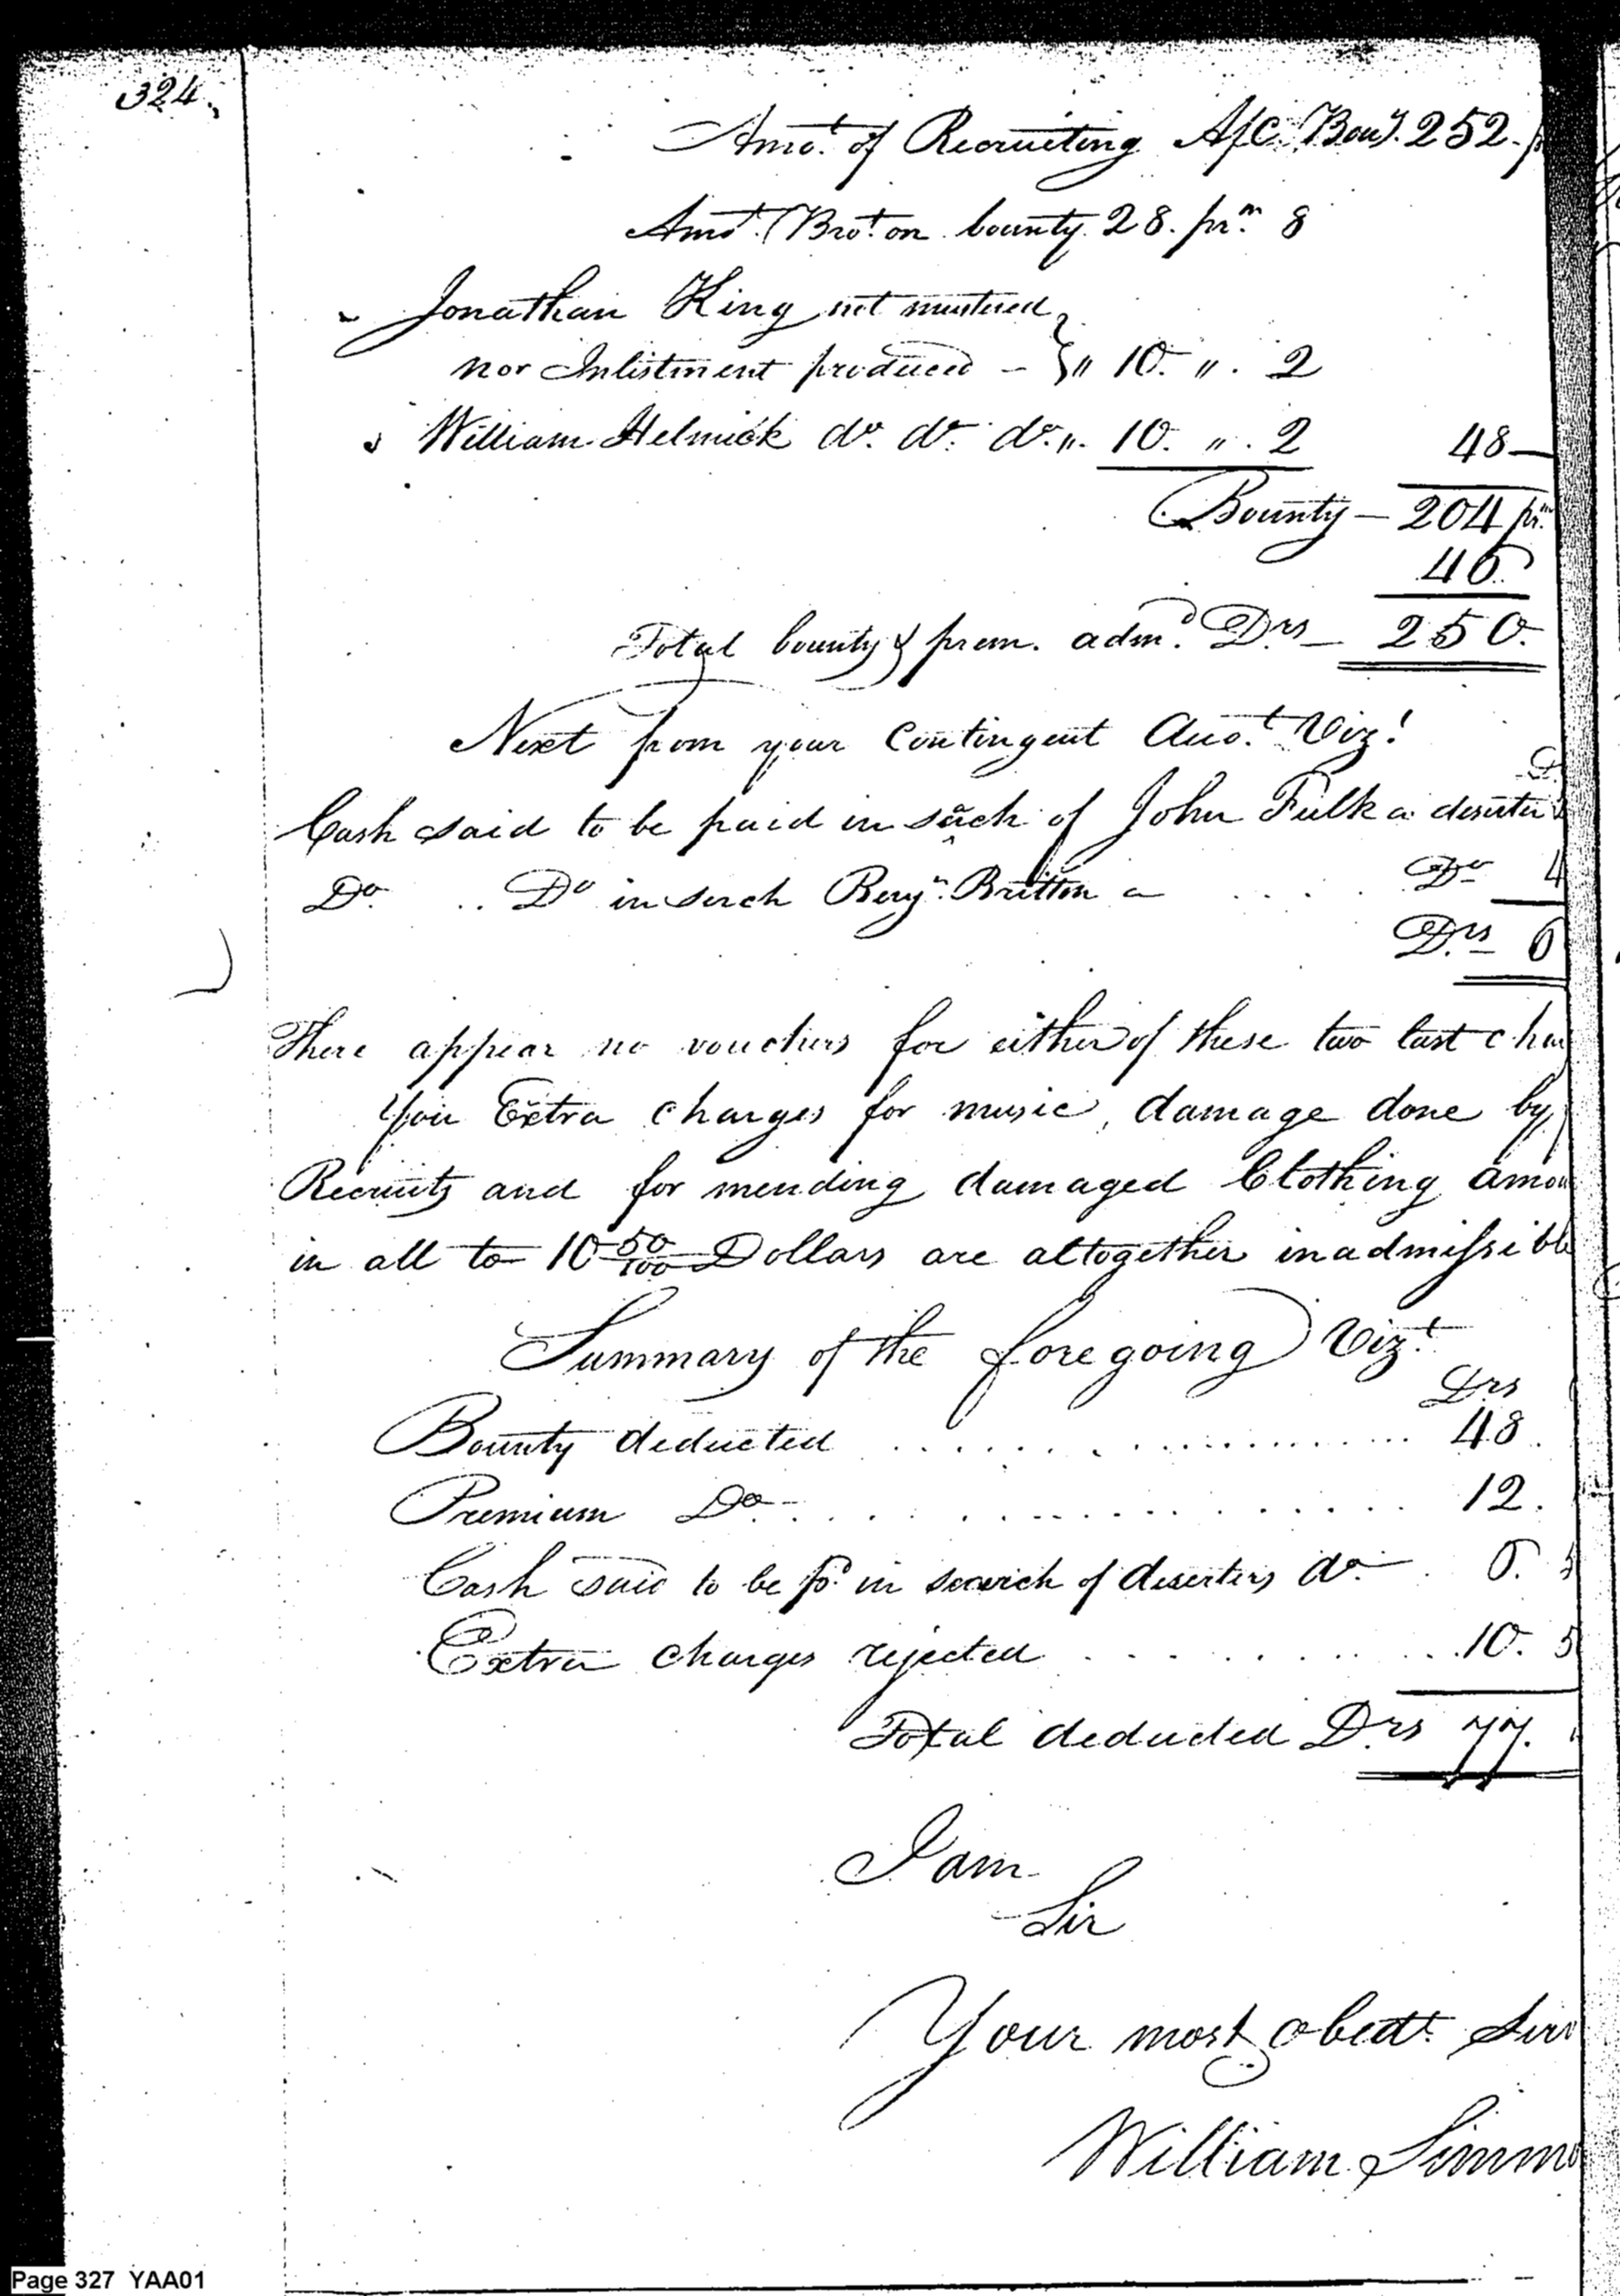 324.
Amot. of Recruiting A/C. Bouy. 252. p
Amot. Brot. on bounty 28. prm. 8
Jonathan King not mustered
nor Inlistment produced - } " 10. " . 2
William Helmick do. do. do. " . 10. " . 2 48
Bounty - 204 prm.
46
Total bounty & prem. admd. Drs - 250.
Next from your Contingent Acot. Vizt.
Cash said to be paid in sæch of John Fulk a deserter
Do. .. Do in serch Benjn. Britton a . . . . Do 4
Drs 6
There appear no vouchers for either of these two last cha
You Extra charges for music, damage done by
Recruits and for mending damaged Clothing amou
in all to 10 50/100 Dollars are altogether inadmissible
Summary of the foregoing Vizt.
Drs
Bounty deducted .................... 48.
Premium Do. .................... 12.
Cash said to be pd. in search of deserters do. . 6. 5
Extra charges rejected .............. 10. 5
Total deducted Drs 77.
I am
Sir
Your most obedt. Serv
William Simmo
Page 327 YAA01